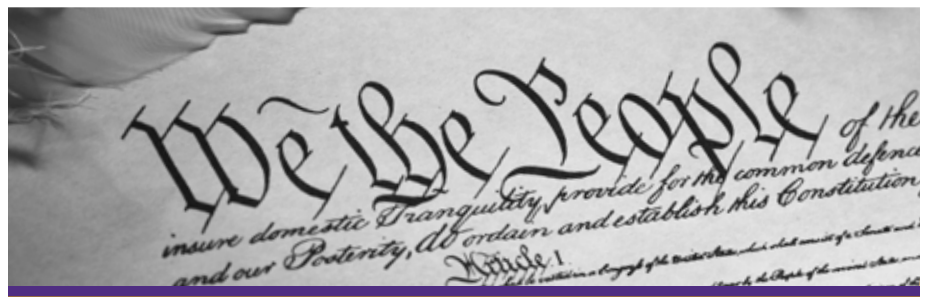 We the People of the
insure domestic Tranquility, provide for the common defence
and our Posterity, do ordain and establish this Constitution
Article. I.